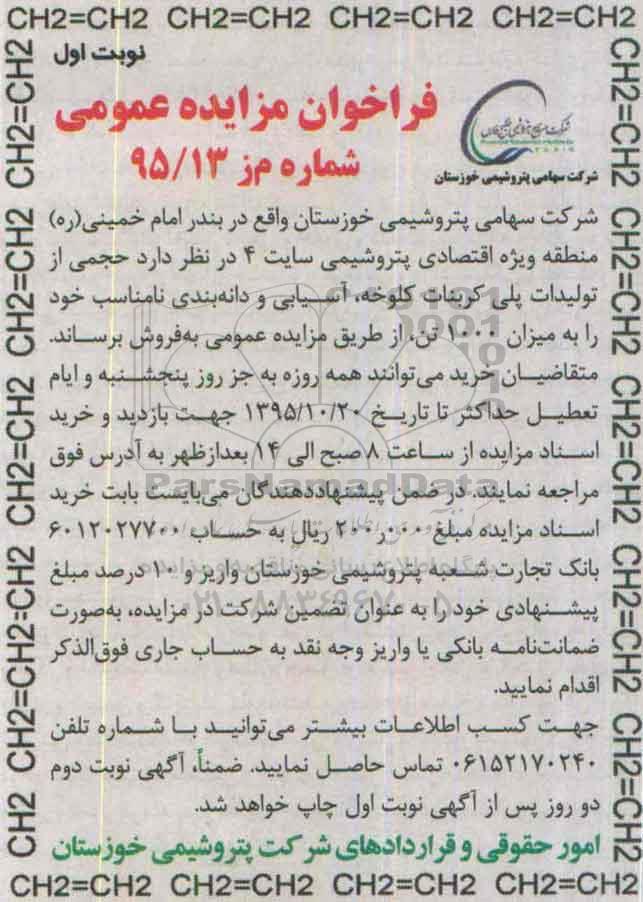 CH2=CH2 CH2=CH2 CH2=CH2 CH2=CH2
نوبت اول
فراخوان مزایده عمومی
شماره م‌ز ۹۵/۱۳
شرکت سهامی پتروشیمی خوزستان
شرکت سهامی پتروشیمی خوزستان واقع در بندر امام خمینی(ره)
منطقه ویژه اقتصادی پتروشیمی سایت ۴ در نظر دارد حجمی از
تولیدات پلی کربنات کلوخه، آسیابی و دانه‌بندی نامناسب خود
را به میزان ۱۰۰،۱ تن، از طریق مزایده عمومی به‌فروش برساند.
متقاضیان خرید می‌توانند همه روزه به جز روز پنجشنبه و ایام
تعطیل حداکثر تا تاریخ ۱۳۹۵/۱۰/۲۰ جهت بازدید و خرید
اسناد مزایده از ساعت ۸ صبح الی ۱۴ بعدازظهر به آدرس فوق
مراجعه نمایند. در ضمن پیشنهاددهندگان می‌بایست بابت خرید
اسناد مزایده مبلغ ۲۰۰٫۰۰۰ ریال به حساب ۶۰۱۲۰۲۷۷۰۰
بانک تجارت شعبه پتروشیمی خوزستان واریز و ۱۰ درصد مبلغ
پیشنهادی خود را به عنوان تضمین شرکت در مزایده، به‌صورت
ضمانت‌نامه بانکی یا واریز وجه نقد به حساب جاری فوق‌الذکر
اقدام نمایید.
جهت کسب اطلاعات بیشتر می‌توانید با شماره تلفن
۰۶۱۵۲۱۷۰۲۴۰ تماس حاصل نمایید. ضمناً، آگهی نوبت دوم
دو روز پس از آگهی نوبت اول چاپ خواهد شد.
امور حقوقی و قراردادهای شرکت پتروشیمی خوزستان
CH2=CH2 CH2=CH2 CH2=CH2 CH2=CH2
CH2=CH2 CH2=CH2 CH2=CH2 CH2=CH2 CH2=CH2
CH2=CH2 CH2=CH2 CH2=CH2 CH2=CH2 CH2=CH2
ParsNamadData
۰۲۱-۸۸۳۴۹۶۷۰-۵